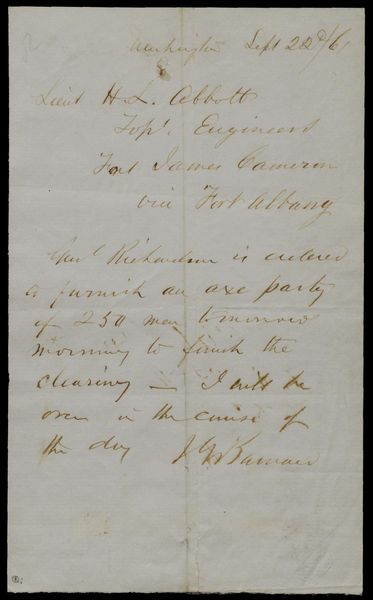 Washington Sept 22d/61
Lieut H. L. Abbott
Topl. Engineers
Fort James Cameron
via Fort Albany
Genl Richardson is ordered
to furnish an axe party
of 250 men tomorrow
morning to finish the
clearing — I will be
over in the course of
the day J G Barnard